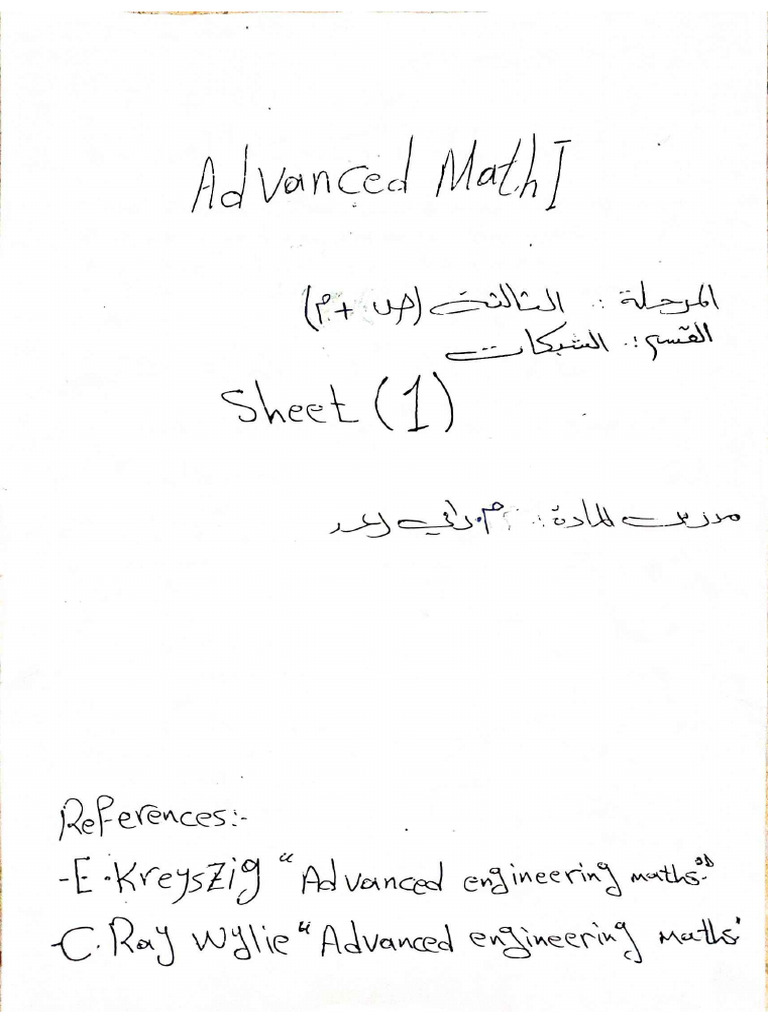 Advanced Math I
المرحلة : الثالثة (ص + م)
القسم : الشبكات
Sheet (1)
مدرس المادة : م. راني رعد
References:-
-E. Kreyszig "Advanced engineering maths."
-C. Ray Wylie "Advanced engineering maths"